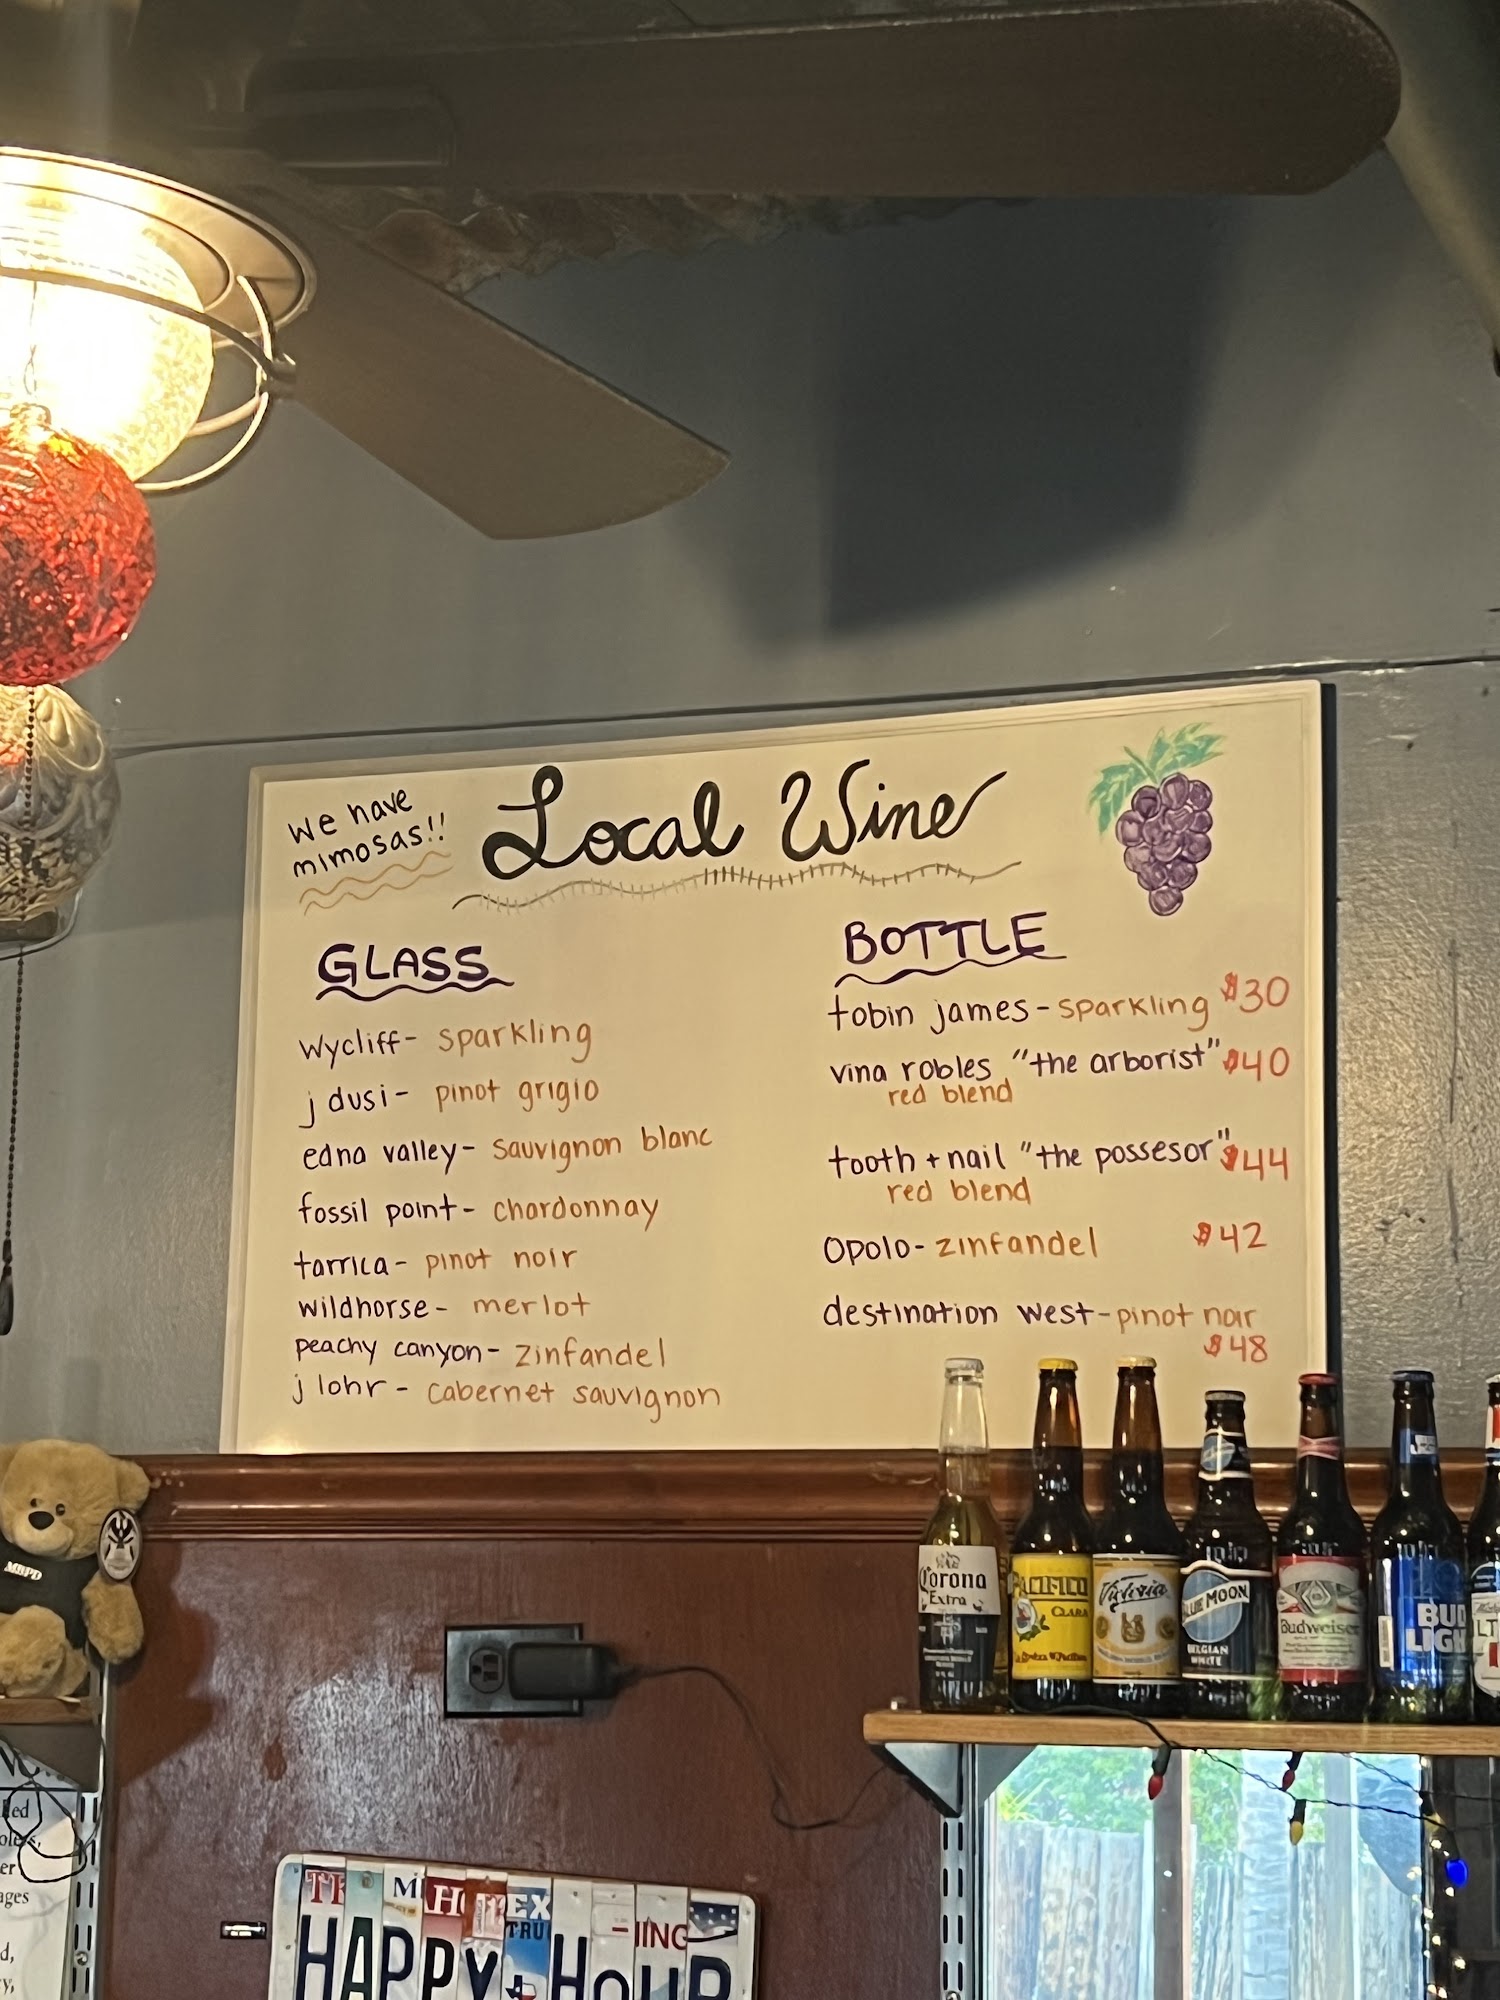 We have
mimosas!!
Local Wine
GLASS
wycliff- sparkling
j dusi- pinot grigio
edna valley- sauvignon blanc
fossil point- chardonnay
tarrica- pinot noir
wildhorse- merlot
peachy canyon- zinfandel
j lohr- cabernet sauvignon
BOTTLE
tobin james-sparkling $30
vina robles "the arborist" $40
red blend
tooth + nail "the possesor" $44
red blend
Opolo-zinfandel $42
destination west-pinot noir
$48
Corona
Extra
PACIFICO
CLARA
Victoria
BLUE MOON
BELGIAN
WHITE
Budweiser
BUD
LIGH
LT
MBPD
Red
er
ages
d,
EX
TRU
ING
HAPPY HOUR